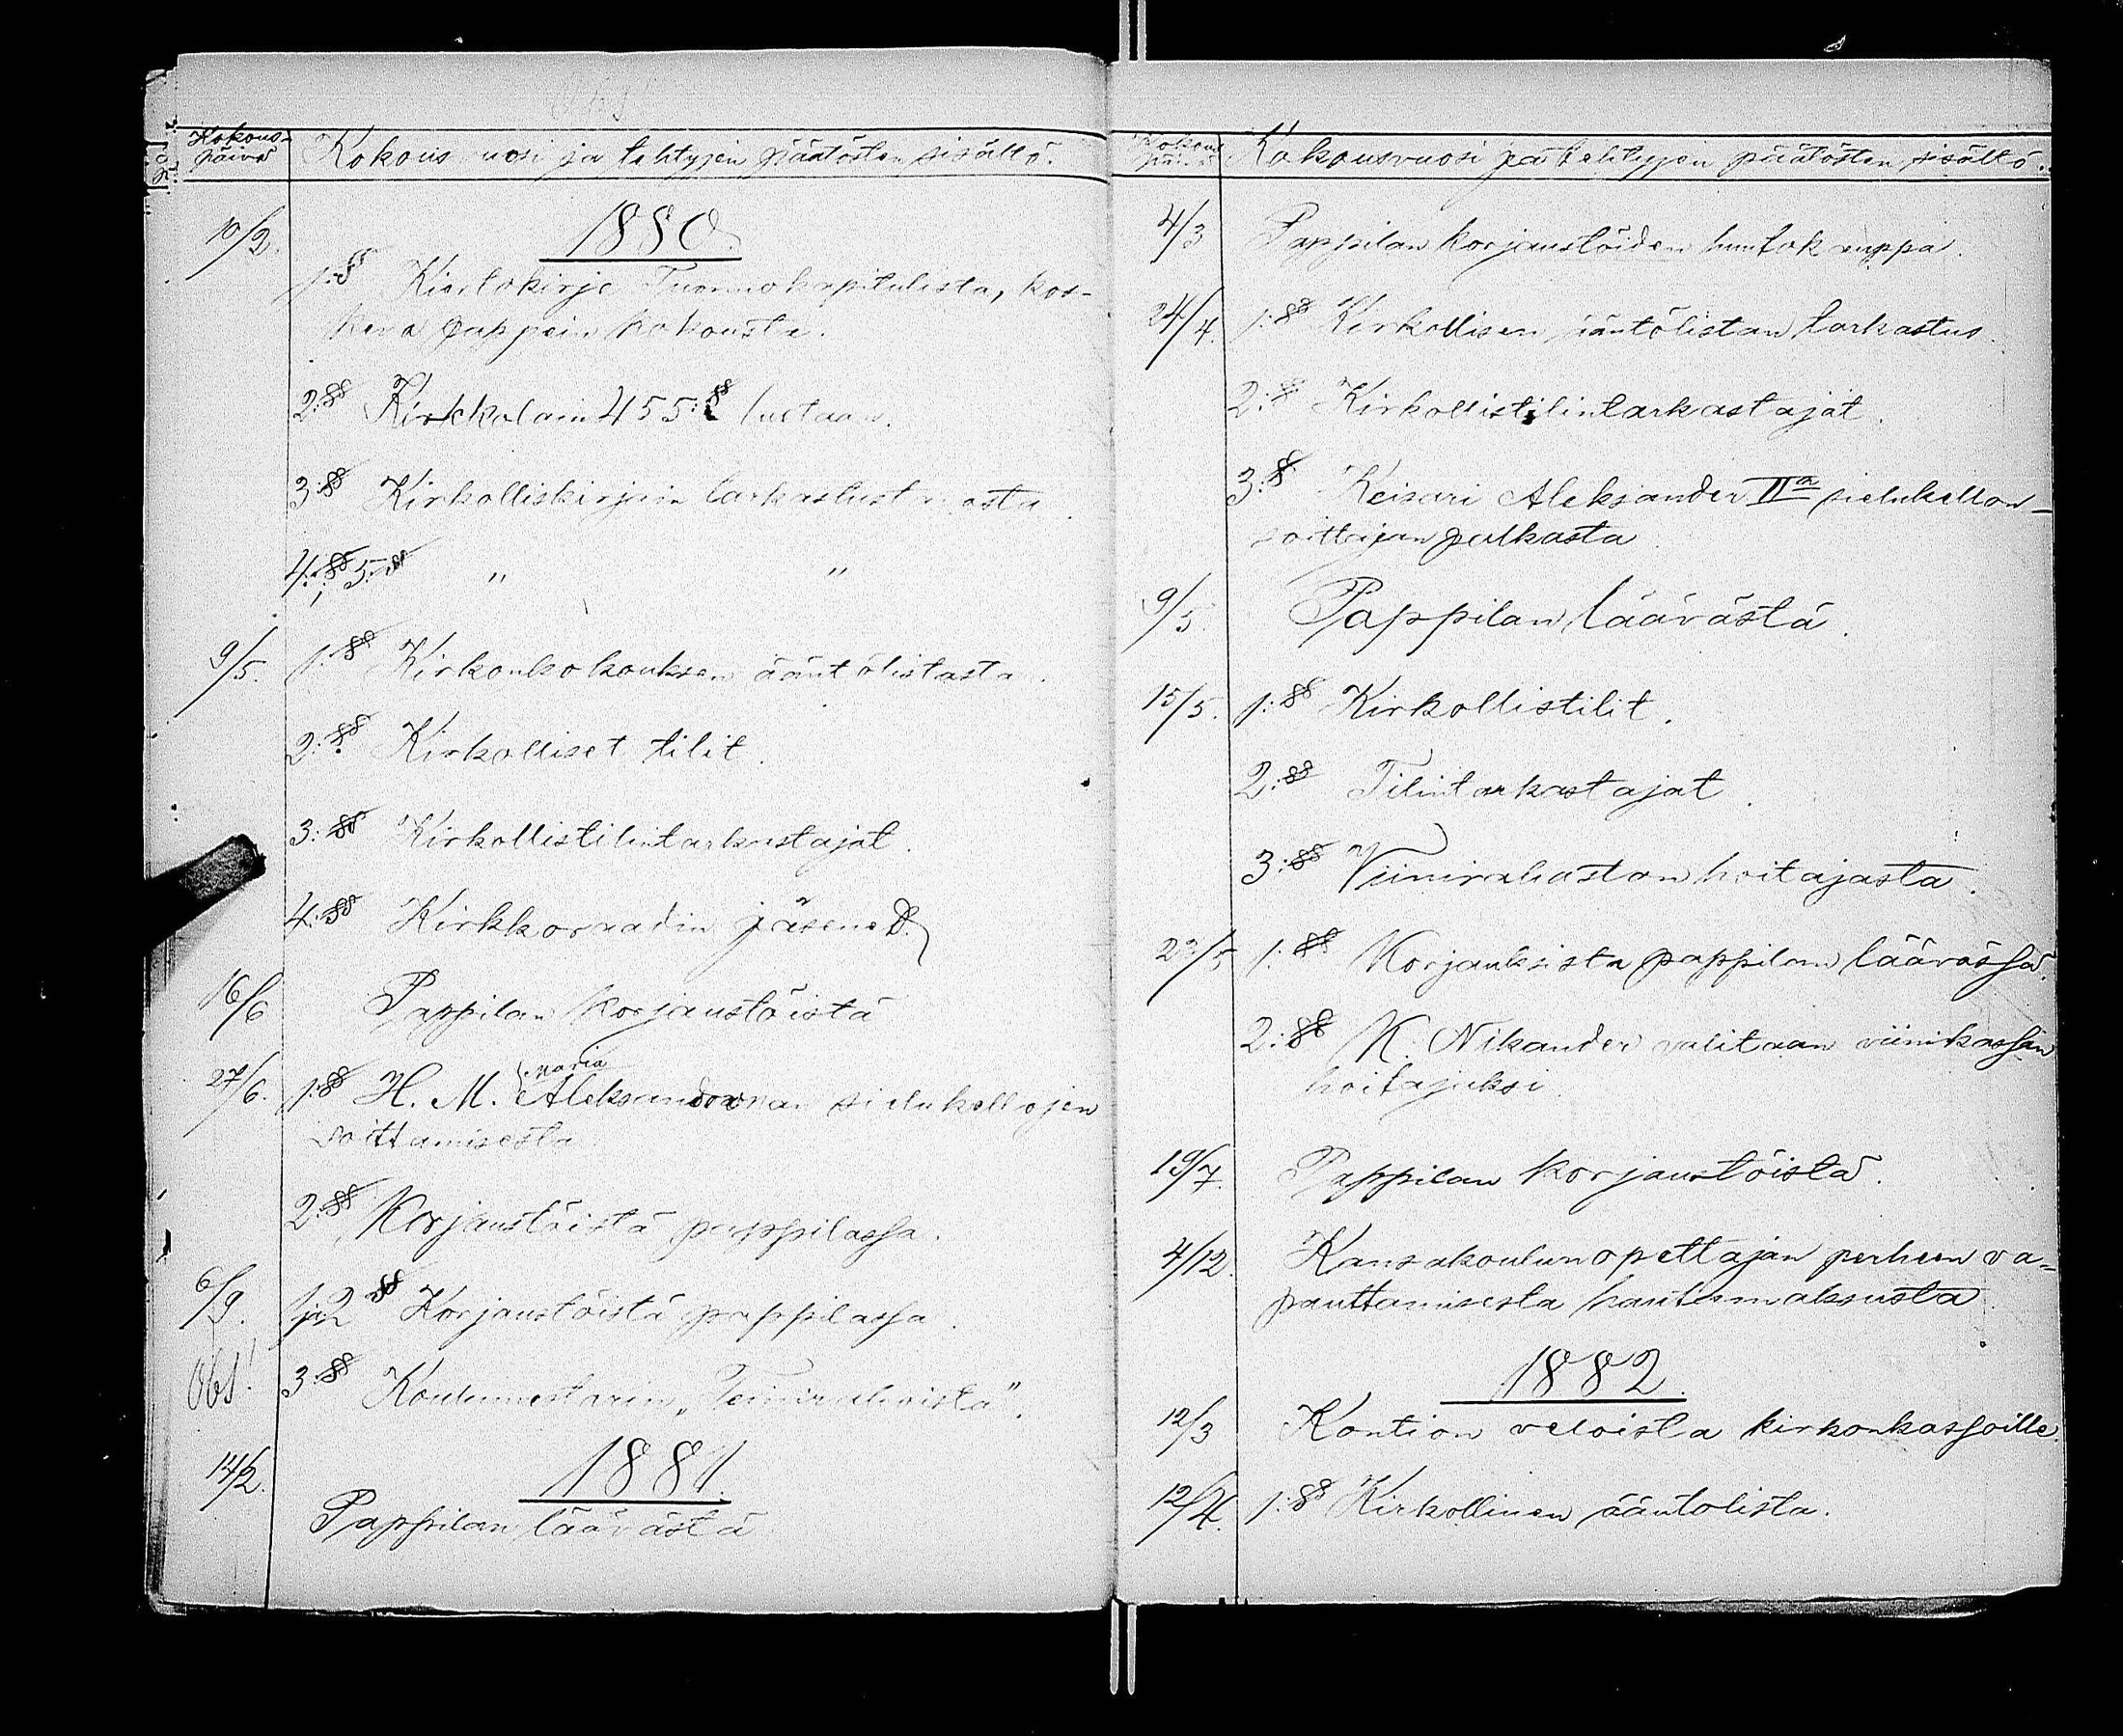 Obs!
Kokous-
päivä
Kokousvuosi ja tehtyjen päätösten sisältö.
1880.
10/2.
1:§ Kiertokirje Tuomiokapitulista, kos-
keva pappein kokousta.
2:§§ Kirkkolain 455:§ luetaan.
3:§§ Kirkolliskirjain tarkastust asta
4:§§, 5:§§ " "
9/5. 1:§§ Kirkonkokouksen ääntölistasta.
2:§§ Kirkolliset tilit.
3:§§ Kirkollistilintarkastajat.
4:§§ Kirkkoraadin jäsenet
16/6 Pappilan korjaustöistä
maria
27/6. 1:§§ H. M. Aleksandrovnan sielukellojen
soittamisesta
2:§§ Korjaustöistä pappilassa.
6/9. 1 ja 2 §§ Korjaustöistä pappilassa.
Obs! 3:§§ Koulumestarin
1881.
14/2.
Pappilan läävästä
Kokous
päivä
Kokousvuosi ja tehtyjen päätösten sisältö.
4/3 Pappilan korjaustöiden huutokauppa.
24/4. 1:§§ Kirkollisen ääntölistan tarkastus.
2:§ Kirkollistilintarkastajat.
3:§ Keisari Aleksander IIa sielukellon-
soittajan palkasta
9/5. Pappilan läävästä.
15/5. 1:§§ Kirkollistilit.
2:§§ Tilintarkastajat.
3:§§ Viinirahaston hoitajasta.
22/5 1:§§ Korjauksista pappilan läävässä.
2:§§ K. Nikander valitaan viinikassan
hoitajaksi.
19/7. Pappilan korjaustöistä.
4/12. Kansakoulunopettajan perheen va-
pauttamisesta hautamaksusta.
1882.
12/3 Kontion veloista kirkonkassoille.
12/4. 1:§§ Kirkollinen ääntölista.